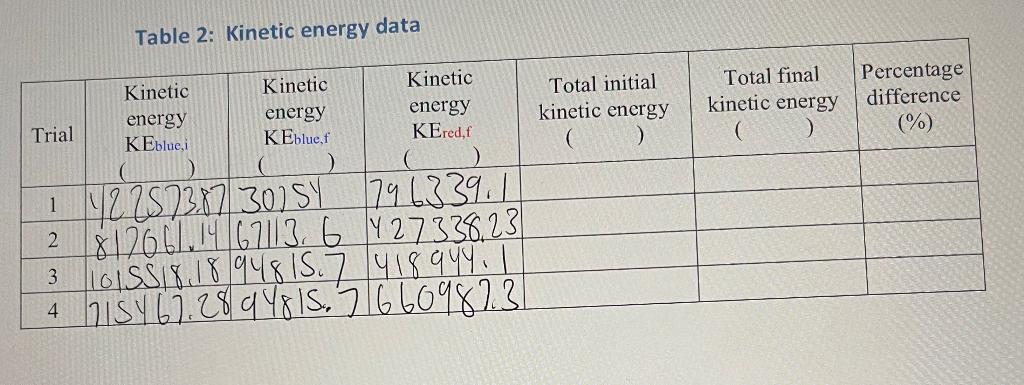 Table 2: Kinetic energy data
Trial
Kinetic energy KEblue,i ( )
Kinetic energy KEblue,f ( )
Kinetic energy KEred,f ( )
Total initial kinetic energy ( )
Total final kinetic energy ( )
Percentage difference (%)
1 422573.87 30754 796339.1
2 817661.14 67113.6 427338.23
3 1015518.18 94815.7 418944.1
4 715467.28 94815.7 660987.3